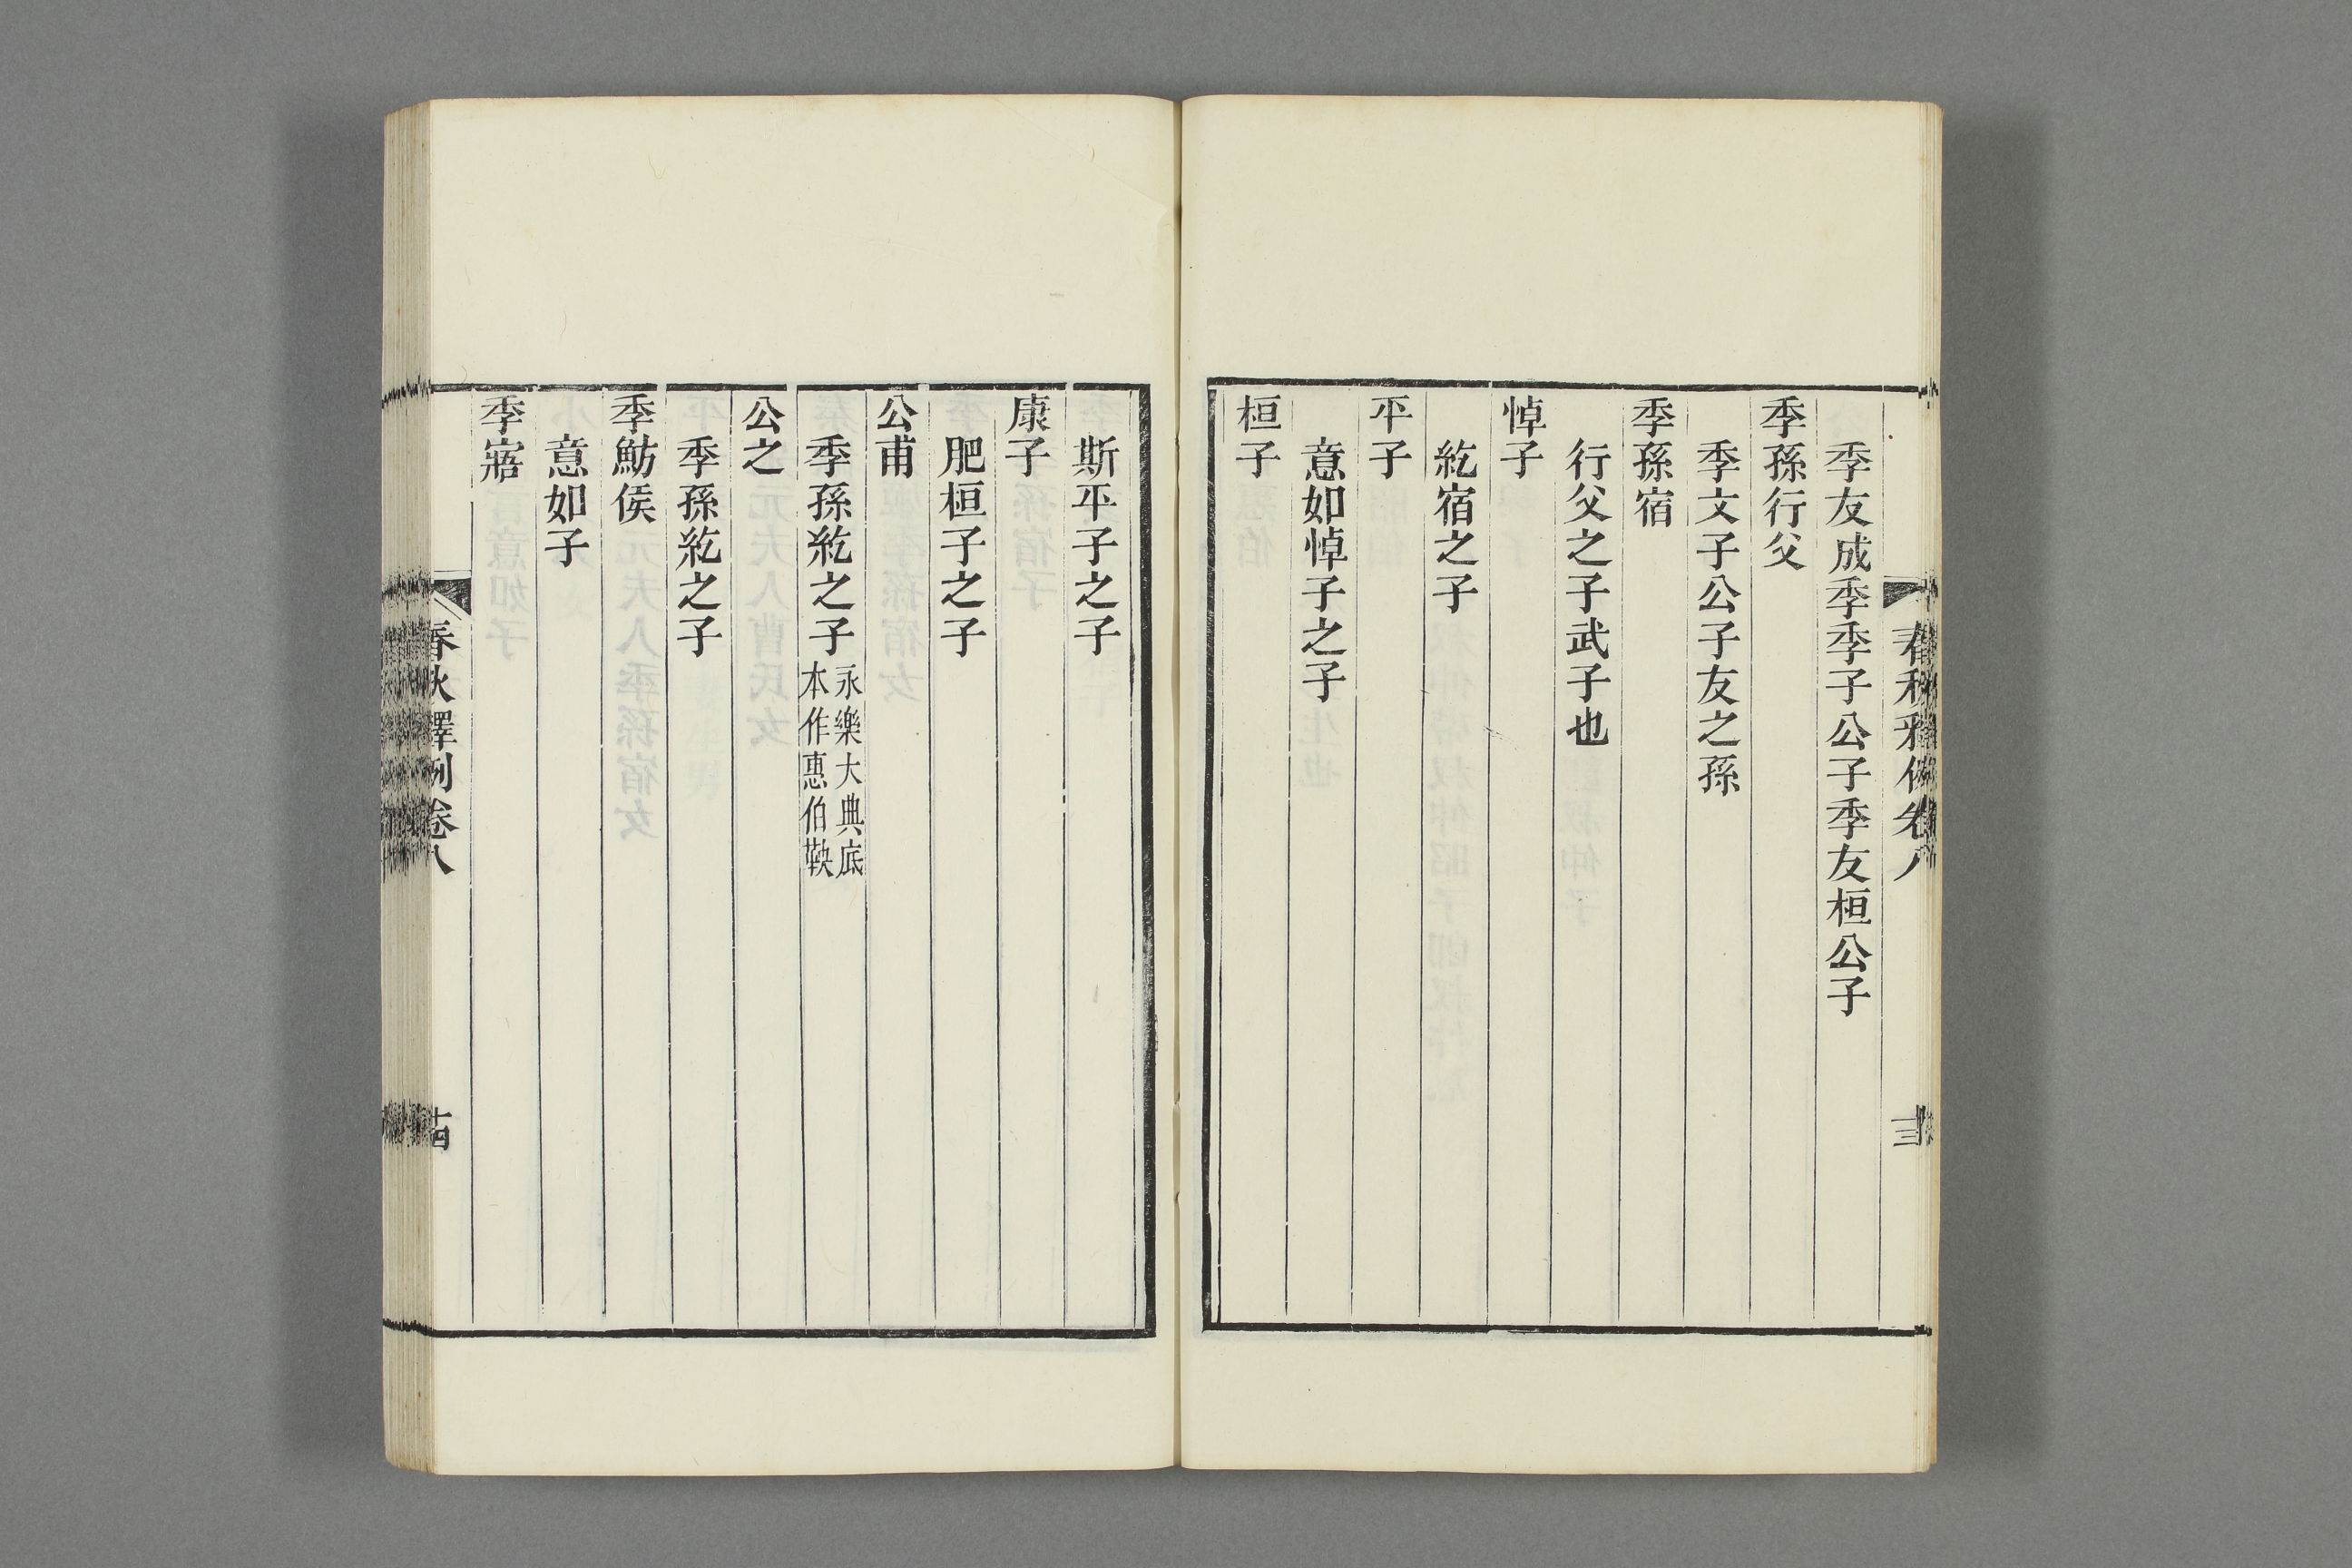 春秋釋例卷八
十三
季友成季季子公子季友桓公子
季孫行父
季文子公子友之孫
季孫宿
行父之子武子也
悼子
紇宿之子
平子
意如悼子之子
桓子
斯平子之子
康子
肥桓子之子
公甫
季孫紇之子
永樂大典底
本作惠伯鞅
公之
季孫紇之子
季魴侯
意如子
季寤
春秋釋例卷八
十四